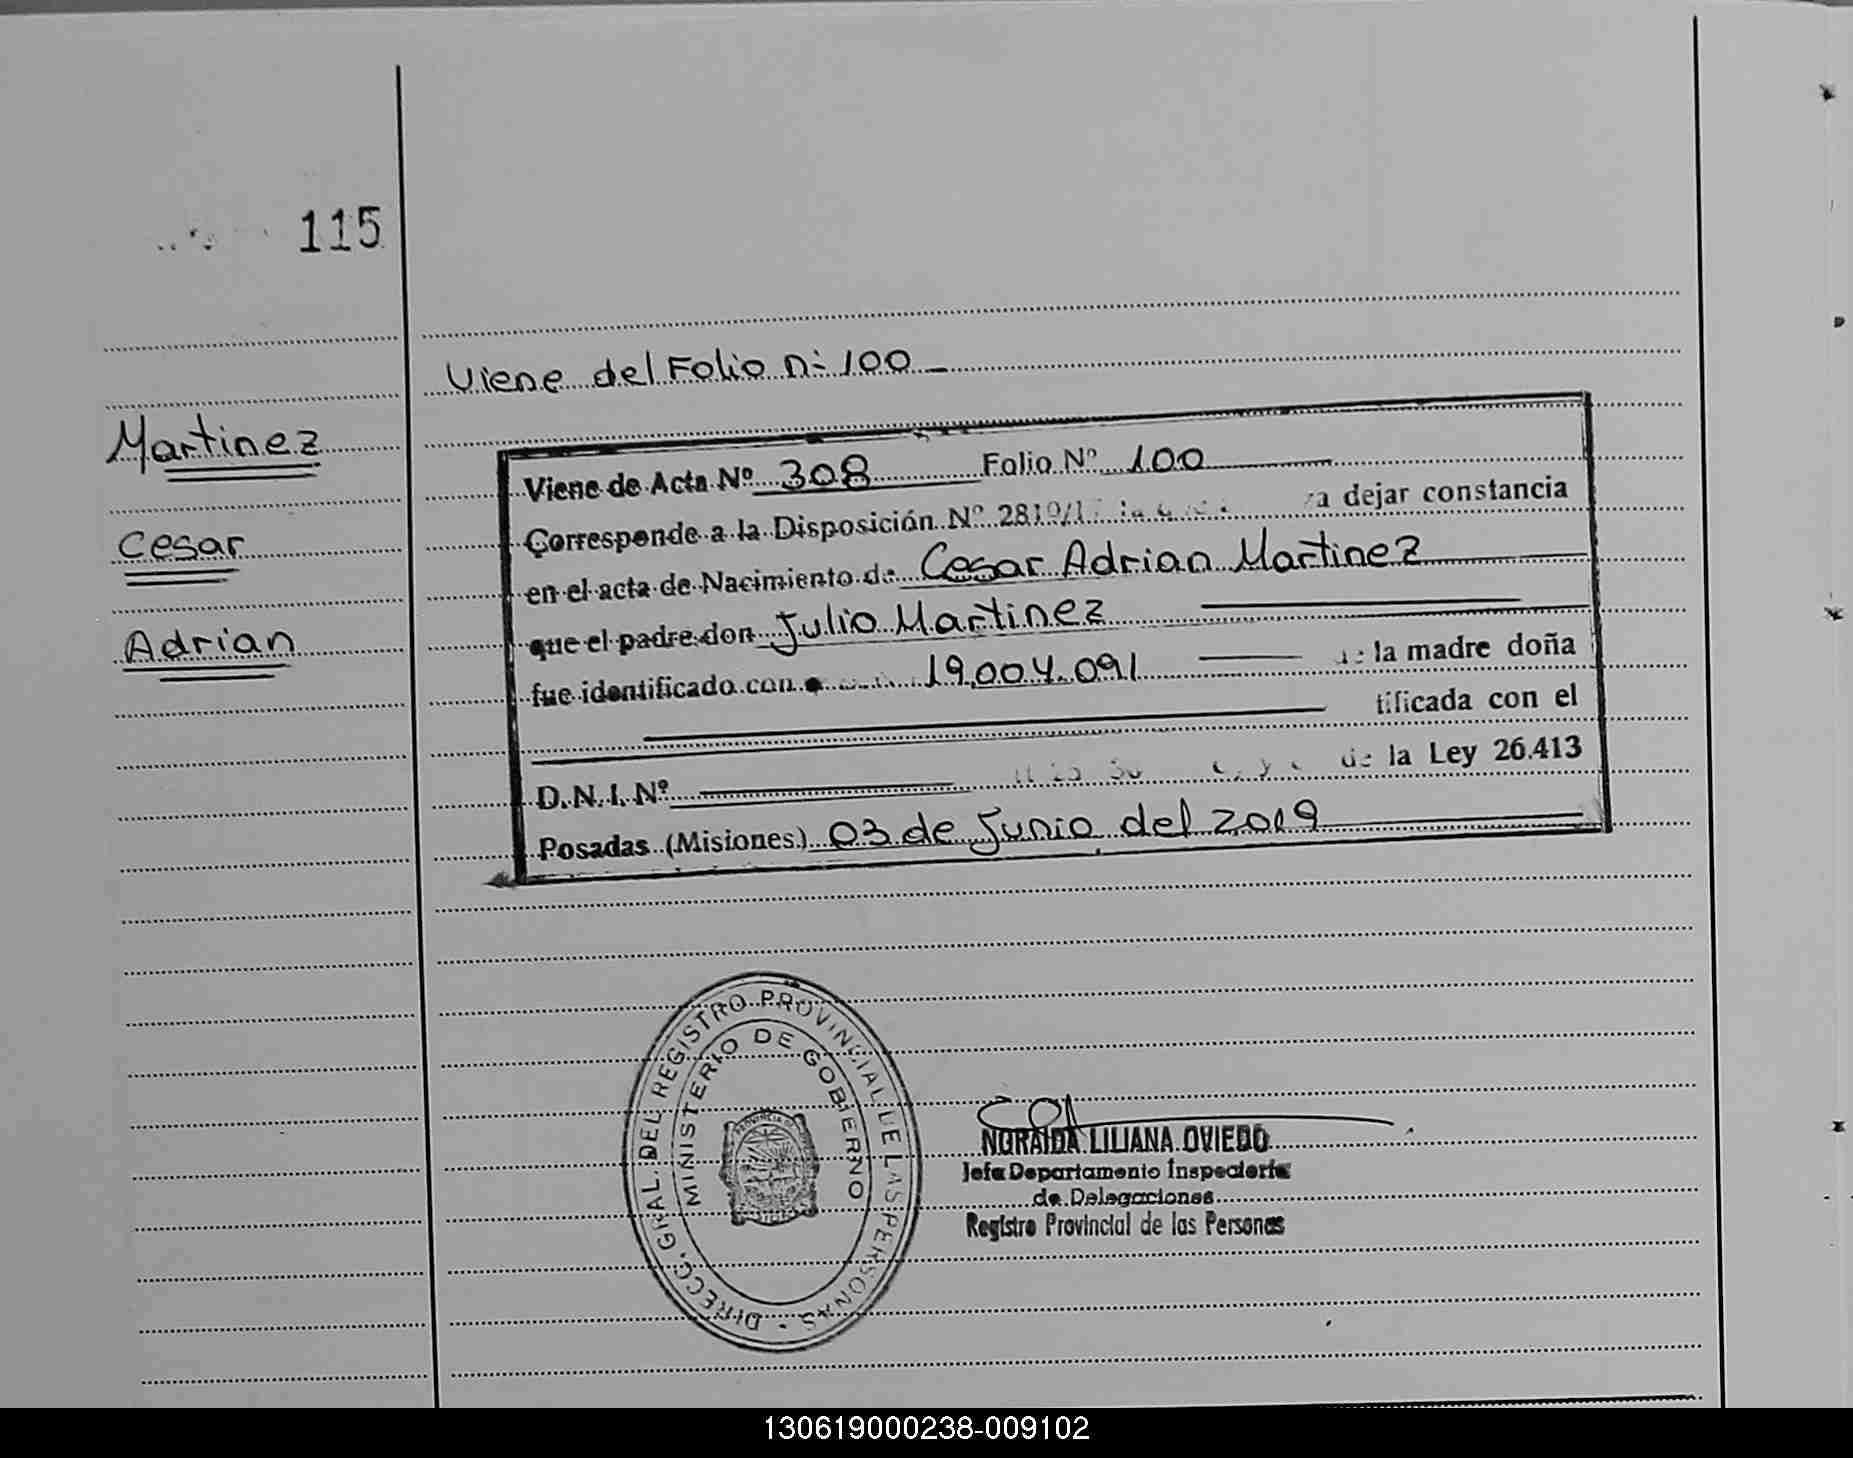 115
Viene del Folio n: 100
Martinez
Cesar
Adrian
Viene de Acta Nº 308 Folio Nº 100
Corresponde a la Disposición Nº 2819/1 dejar constancia
en el acta de Nacimiento de Cesar Adrian Martinez
que el padre don Julio Martinez
fue identificado con 19.004.091 la madre doña
con el
D.N.I. Nº de la Ley 26.413
Posadas (Misiones) 03 de Junio del 2019
DIRECC. GRAL. DEL REGISTRO PROVINCIAL DE LAS PERSONAS -
MINISTERIO DE GOBIERNO
NORAIDA LILIANA OVIEDO
Jefa Departamento Inspectoría
de Delegaciones
Registro Provincial de las Personas
130619000238-009102